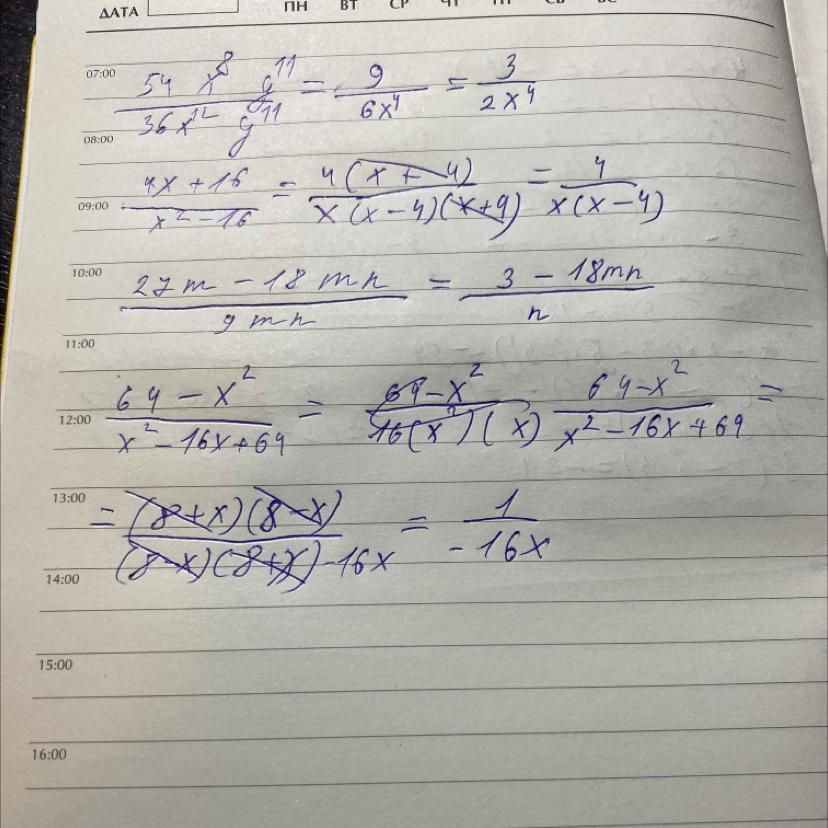 ДАТА ПН ВТ СР ЧТ ПТ СБ ВС
07:00
54 x^8 y^11 / 36x^12 y^11 = 9 / 6x^4 = 3 / 2x^4
08:00
09:00
4x + 16 / x^2 - 16 = 4(x + 4) / x(x - 4)(x + 4) = 4 / x(x - 4)
10:00
27m - 18mn / 9mn = 3 - 18mn / n
11:00
12:00
64 - x^2 / x^2 - 16x + 64 = 64 - x^2 / 16(x^2)(x) 64 - x^2 / x^2 - 16x + 64 =
13:00
= (8 + x)(8 - x) / (8 - x)(8 + x) - 16x = 1 / -16x
14:00
15:00
16:00